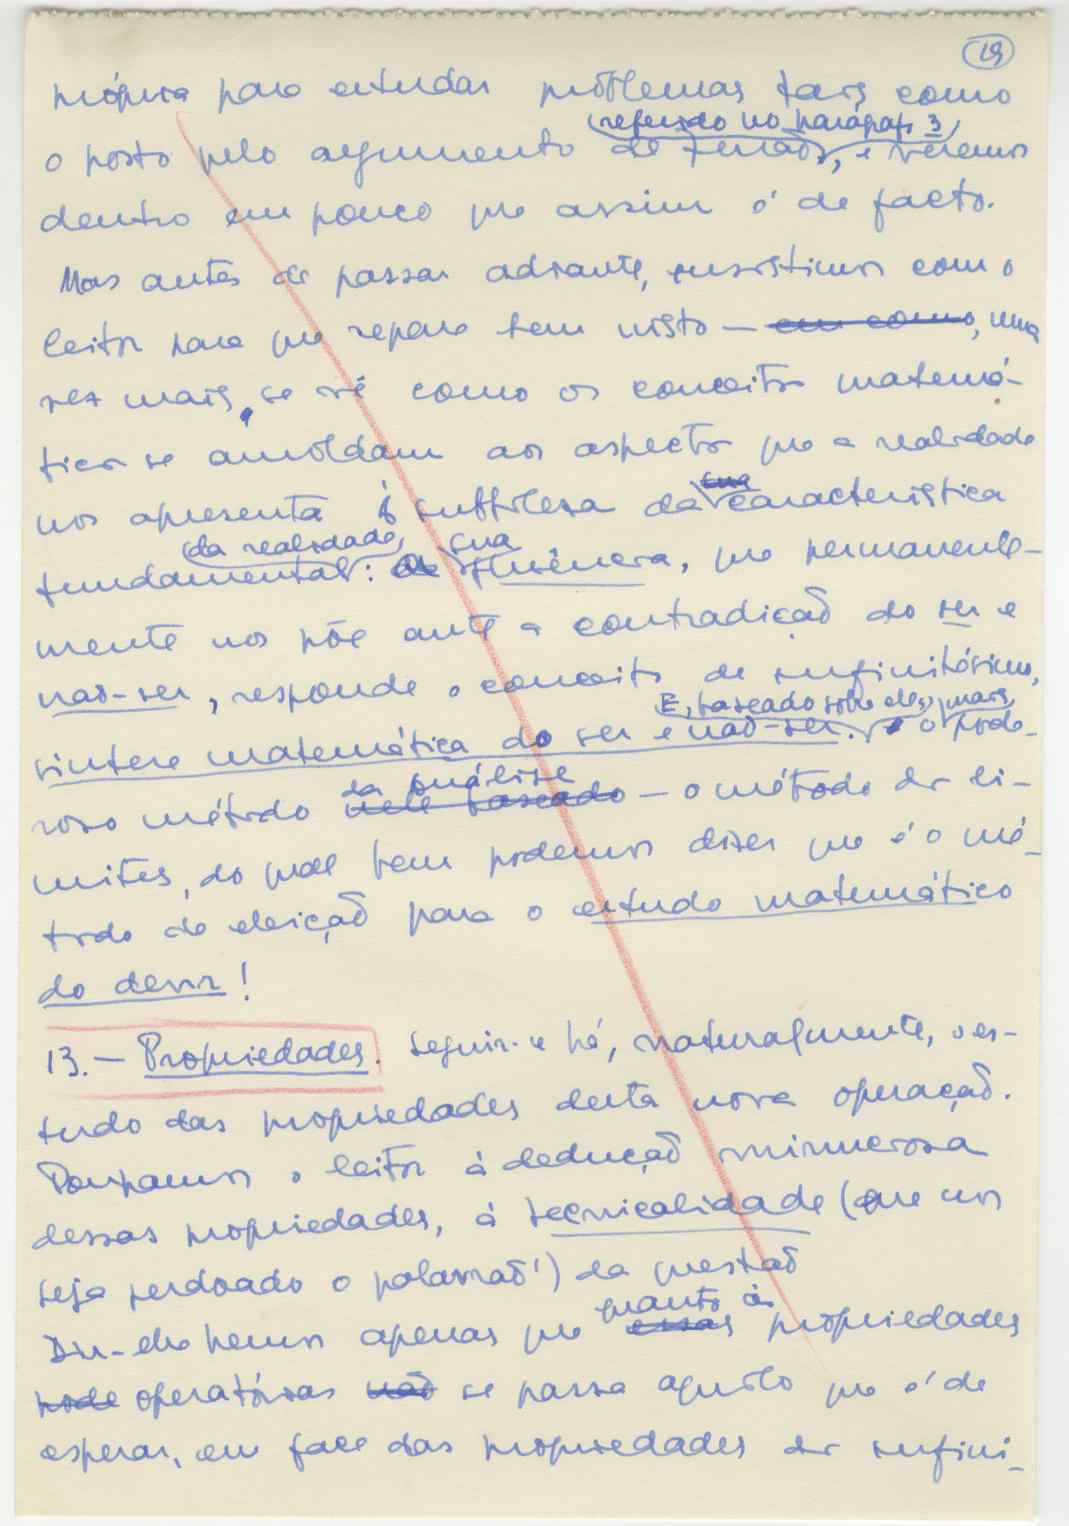 19
própria para estudar problemas tais como
(referido no parágrafo 3)
o posto pelo argumento de Zenão, e veremos
dentro em pouco que assim é de facto.
Mas antes de passar adiante, insistimos com o
leitor para que repare bem nisto — em como, uma
vez mais, se vê como os conceitos matemá-
ticos se amoldam aos aspectos que a realidade
sua
nos apresenta. À subtileza da característica
da realidade, sua
fundamental: a fluência, que permanente-
mente nos põe ante a contradição do ser e
não-ser, responde o conceito de infinitésimo,
E, baseado sobre ele, mais
síntese matemática do ser e não-ser. o pode-
da análise
roso método nele baseado — o método de li-
mites, do qual bem podemos dizer que é o mé-
todo de eleição para o estudo matemático
do devir!
13. — Propriedades. Seguir-se há, naturalmente, o es-
tudo das propriedades desta nova operação.
Poupamos o leitor à dedução minuciosa
dessas propriedades, à tecnicalidade (que nos
seja perdoado o palavrão!) da questão
quanto às
Dir-lhe hemos apenas que essas propriedades
pode operatórias não se passa aquilo que é de
esperar, em face das propriedades de infini-